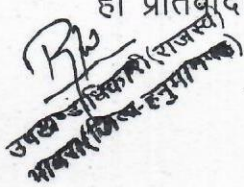 हो प्रतिवाद
उपखण्ड अधिकारी (राजस्व)
भादरा (जिला-हनुमानगढ़)